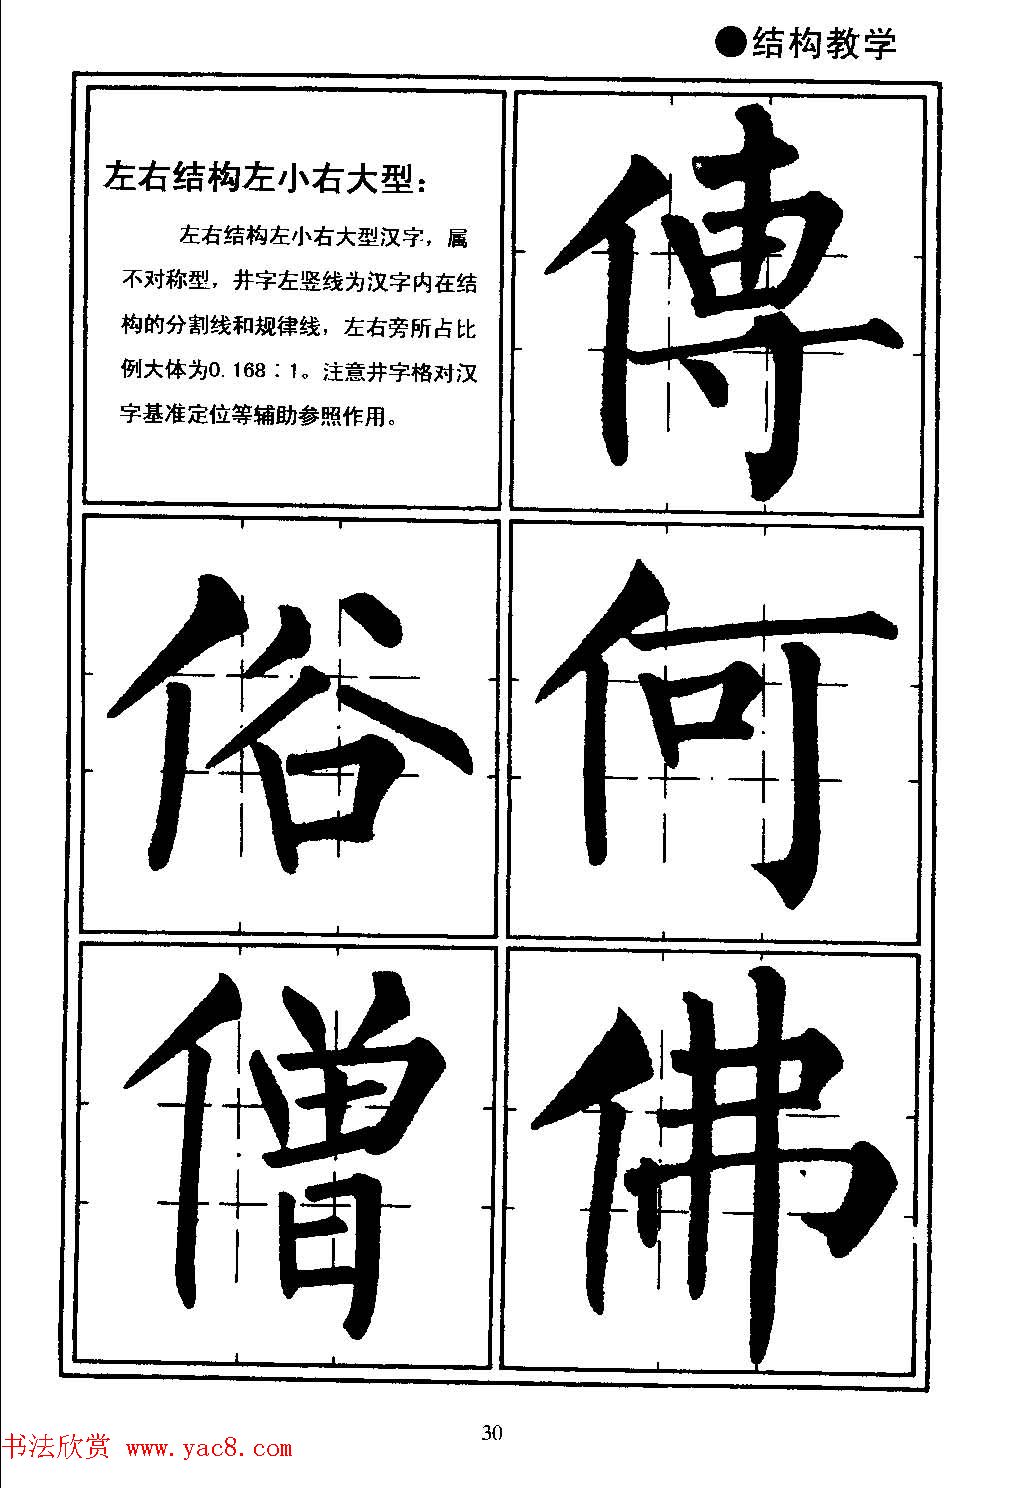 ●结构教学
左右结构左小右大型：
左右结构左小右大型汉字，属
不对称型，井字左竖线为汉字内在结
构的分割线和规律线，左右旁所占比
例大体为0.168：1。注意井字格对汉
字基准定位等辅助参照作用。
傳
俗
何
僧
佛
30
书法欣赏 www.yac8.com